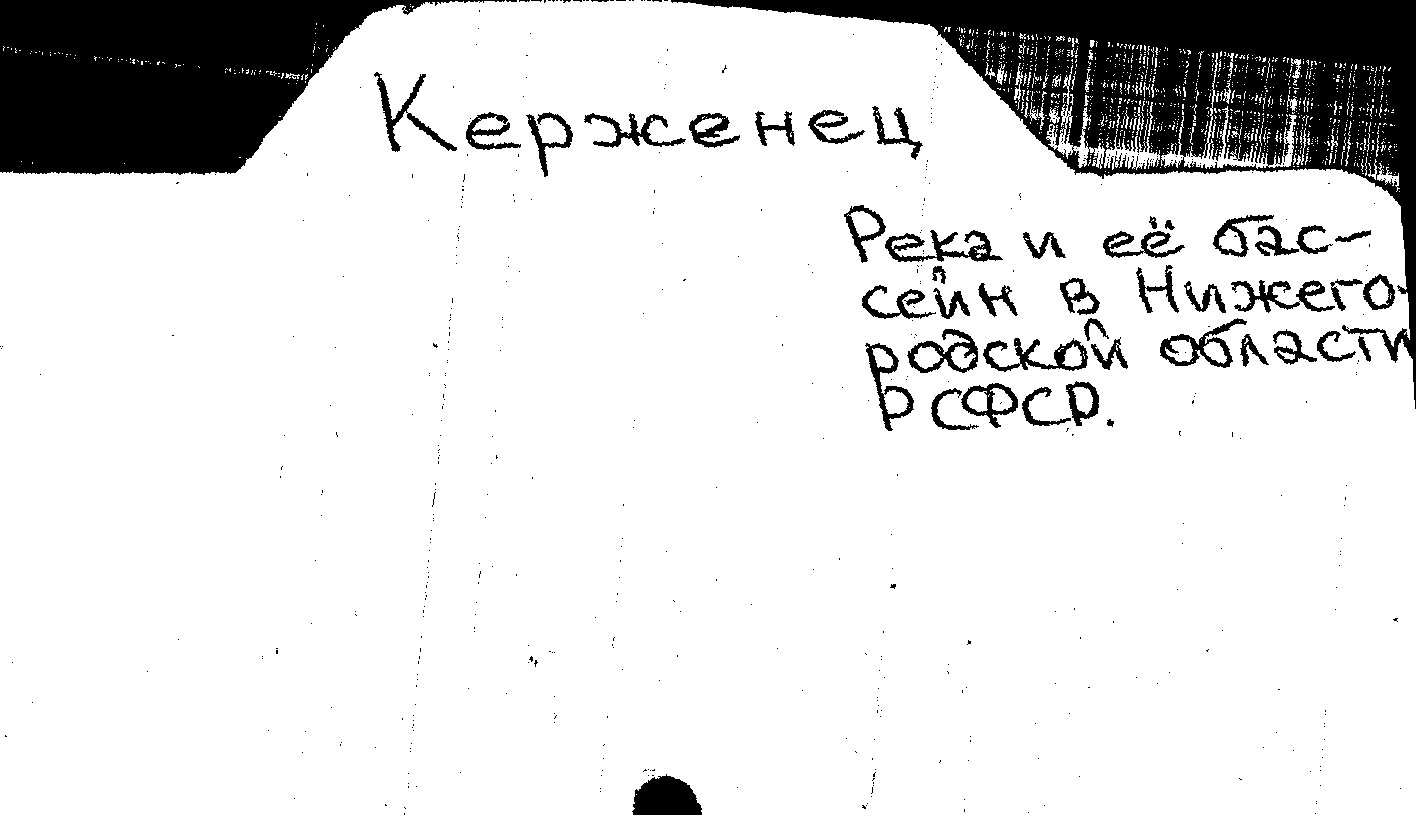 Керженец
Река и её бас-
сейн в Нижего-
родской области
РСФСР.